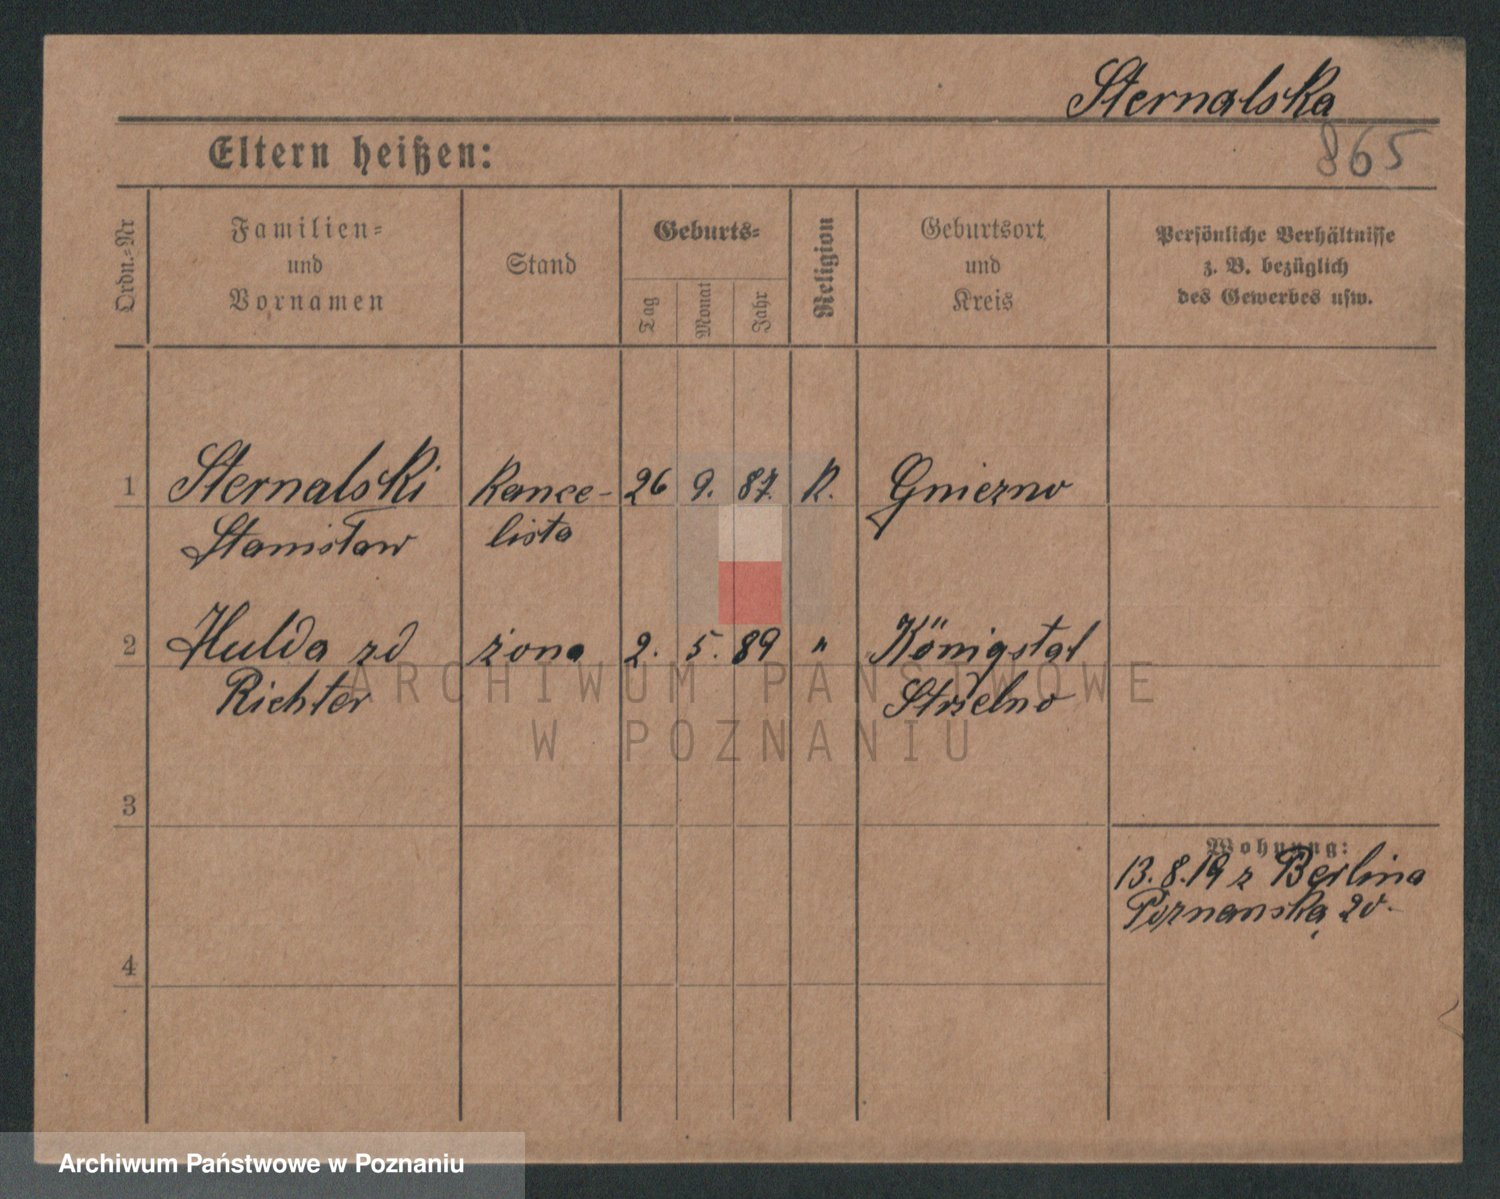 Sternalska
865
Eltern heißen:
Ordn.-Nr
Familien-
und
Vornamen
Stand
Geburts-
Tag
Monat
Jahr
Religion
Geburtsort
und
Kreis
Persönliche Verhältnisse
z. B. bezüglich
des Gewerbes usw.
1 Sternalski Kance- 26 9. 87. K. Gniezno
Stanisław lista
2 Hulda zd żona 2. 5. 89 " Königstal
Richter Strzelno
ARCHIWUM PAŃSTWOWE
W POZNANIU
3
Wohnung:
13.8.19 z Berlina
Poznanska 20.
4
Archiwum Państwowe w Poznaniu